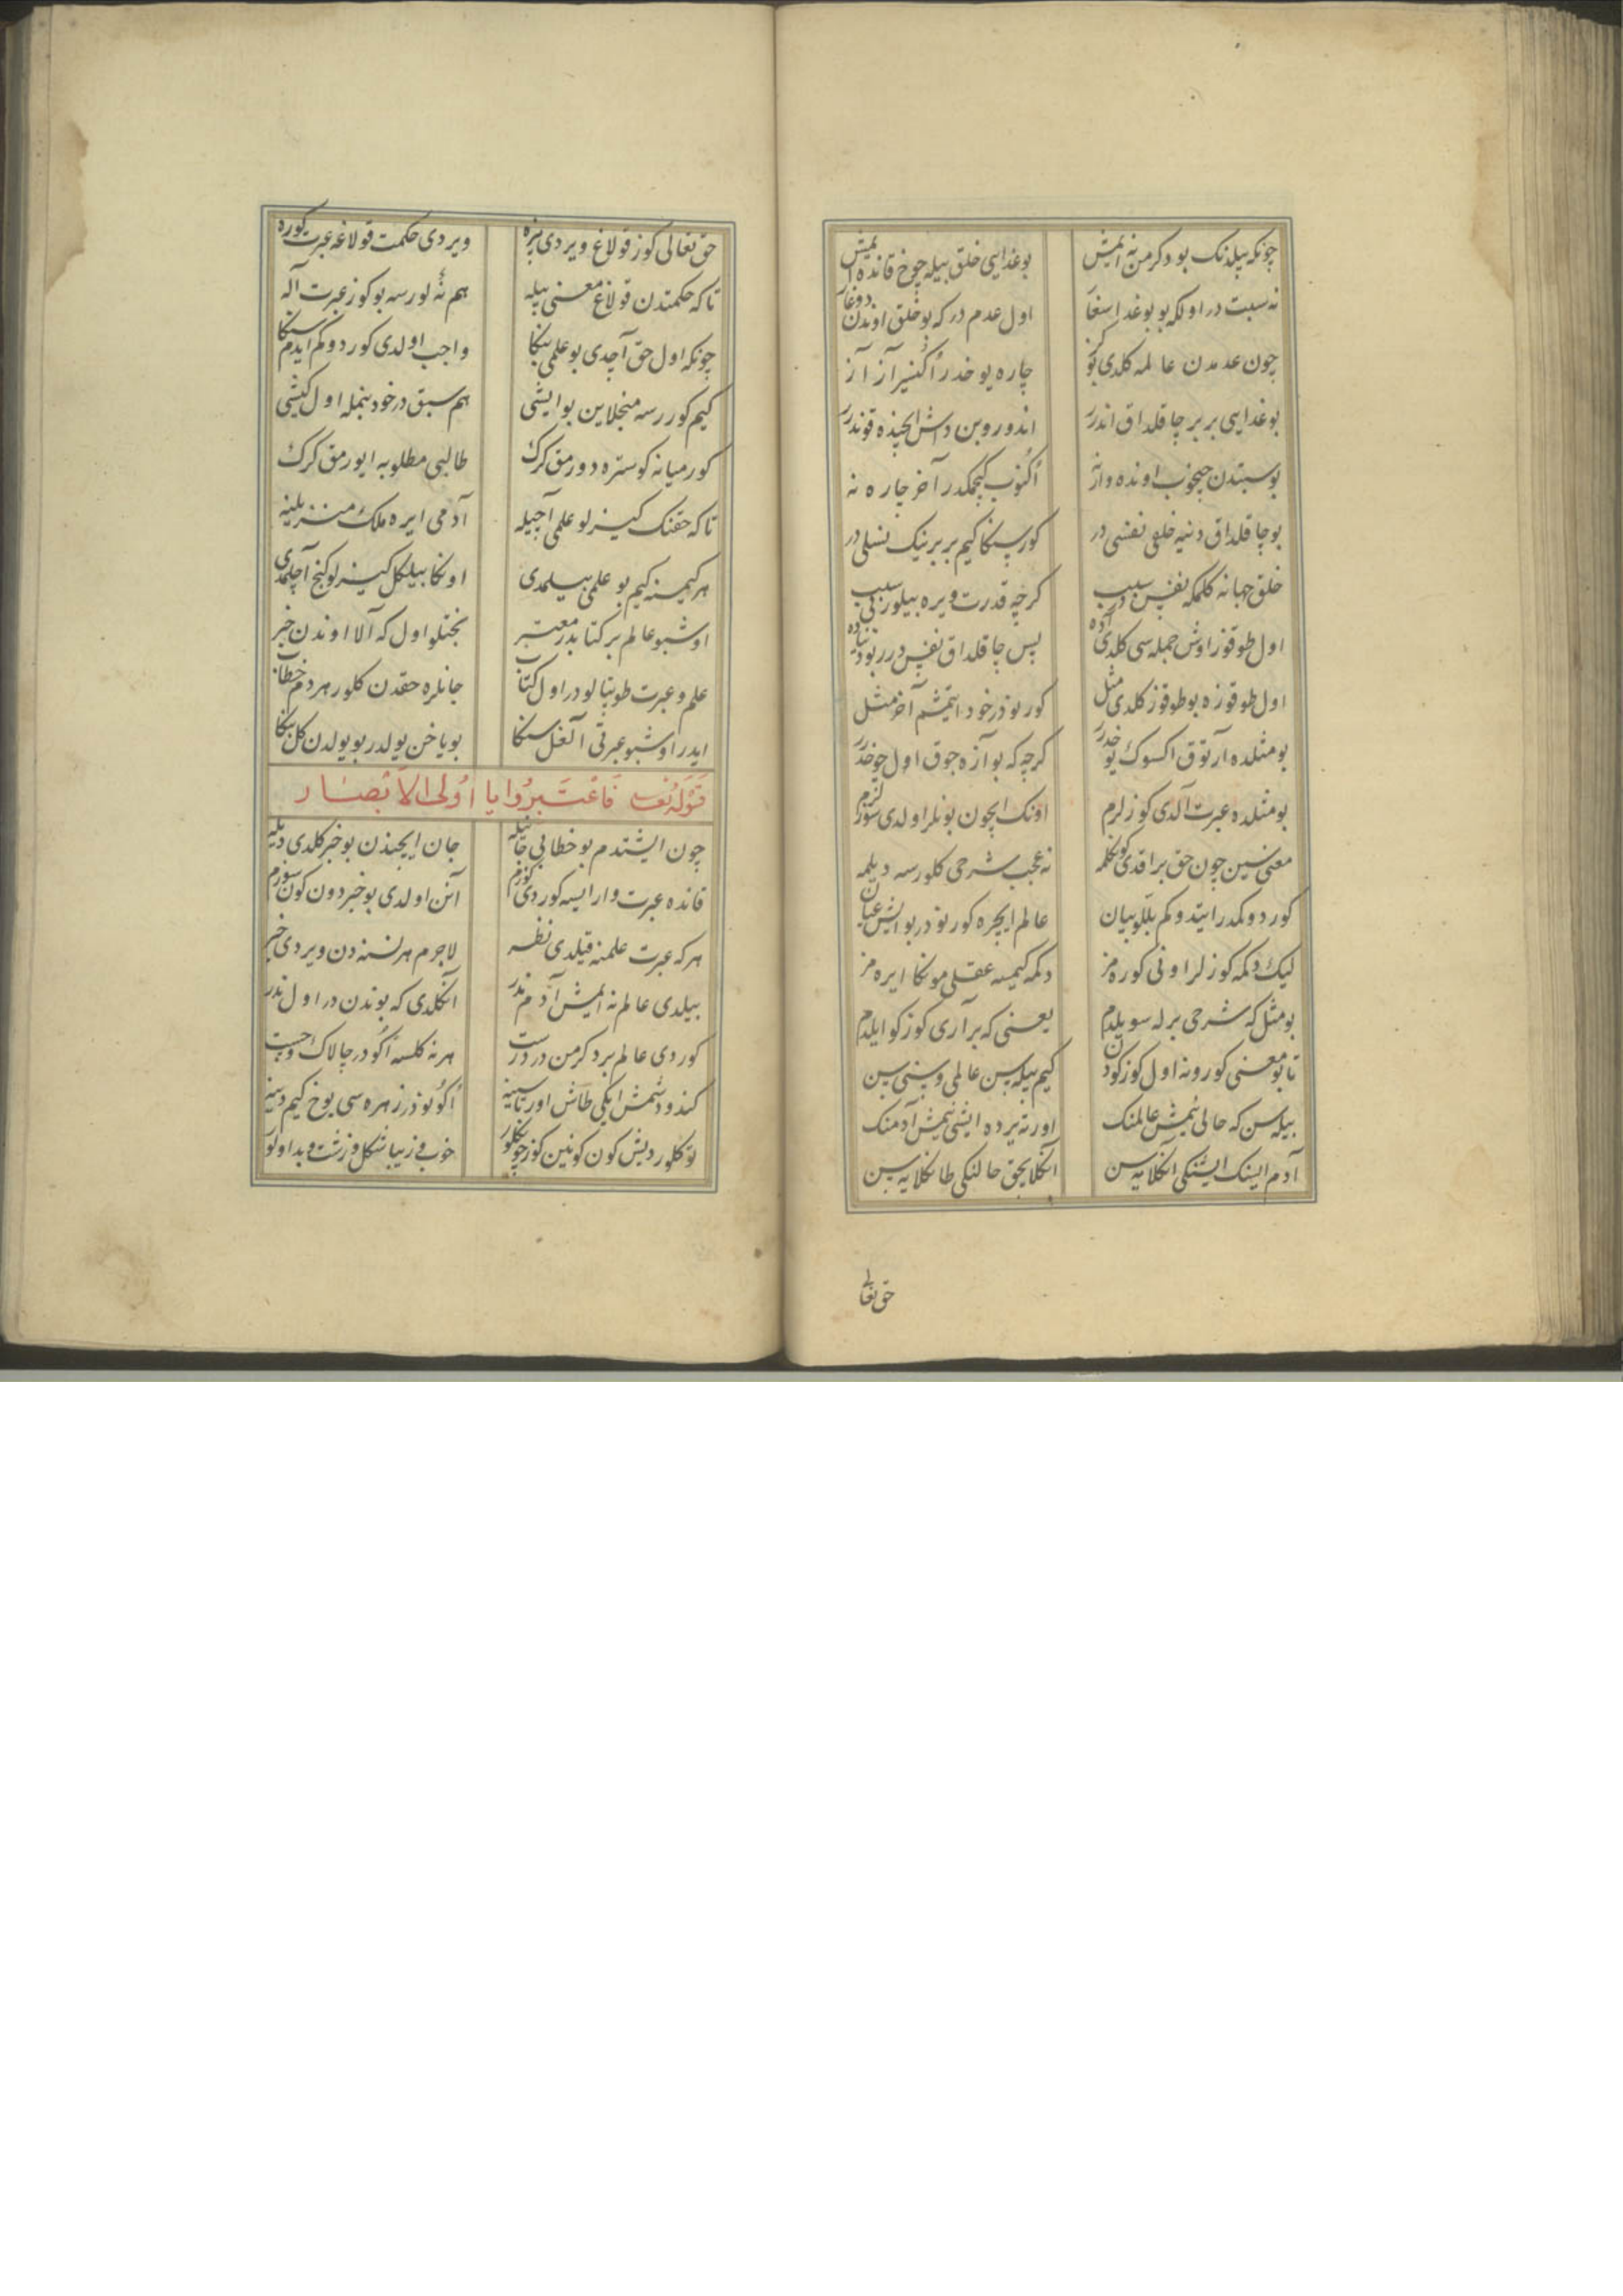 چونکه بیلدنک بو دکرمن نه ایمیش بوغدایی خلق بیله چوخ قانده ایمیش
نه سبت در اولکه بو بوغدا سغا اول عدم در که بو خلق اوندن دوغار
چون عدمدن عالمه کلدی بو چاره یوخدر اکنیر آز آز
بوغدایی بر بر چاقلداق اندرر اندوروبن داش ایچنده قوندرر
بوسبتدن چیخوب اونده وارنه اکنوب کچمکدر آخر چاره نه
بو چاقلداق دنیه خلقی نفسی در کور سنکا کیم بر برینک نسلی در
خلق جهانه کلمکه نفس در سبب کرچه قدرت ویره بیلور بی سبب
اول طوقوز اوش جمله سی کلدی آده پس چاقلداق نفس درر بو دنیاده
اول طوقوزه بو طوقوز کلدی مثل کور نوذر خود ایتمشم آخر مثل
بو مثلده آرتوق اکسوک یوخدرر کرچه که بو آزه جوق اول چوخدرر
بو مثلده عبرت آلدی کوزلرم اونک ایچون بونلر اولدی سوزلرم
معنی سین چون حق براقدی کوکلمه نه عجب شرحی کلورسه دیلمه
کوردوکمدر ایتدوکم بللو بیان عالم ایچره کورنودر بو ایش عیان
لیک دکمه کوزلر اونی کوره مز دکمه کیمسه عقلی مونکا ایره مز
بو مثل که شرحی برله سویلدم یعنی که بر آری کوزکو ایلدم
تا بو معنی کورونه اول کوزکودن کیم بیله سن عالمی و سنی سن
بیله سن که حالی نیمش عالمنک اورته یرده ایشی نیمش آدمنک
آدم ایسنک ایشنکی انکلایه سن انکلایجق حالنکی طانکلایه سن
حق تعالی
حق تعالی کوز قولاغ ویردی بزه ویردی حکمت قولاغه عبرت کوزه
تا که حکمتدن قولاغ معنی بیله هم نه اولورسه بو کوز عبرت آله
چونکه اول حق آچدی بو علمی بنکا واجب اولدی کوردوکم ایدم سنکا
کیم کوررسه منجلاین بو ایشی هم سبق در خود بنمله اول کشی
کورمیانه کوستره دورمق کرک طالبی مطلوبه ایورمق کرک
تا که حقنک کیزلو علمی آچیله آدمی ایره ملک منزلینه
هر کیمسنه کیم بو علمی بیلمدی اونکا بیلکل کیزلو کنج آچلمدی
اوشبو عالم بر کتابدر معتبر بختلو اول که آلا اوندن خبر
علم و عبرت طوبتالودر اول کتاب جانلره حقدن کلور هر دم خطاب
ایدر اوشبو عبرتی آلغل سنکا بو یاخن یولدر بو یولدن کل بنکا
قوله تعالی فاعتبروا یا اولی الابصار
چون ایشتدم بو خطابی جانیله جان ایچندن بو خبر کلدی دیله
قانده عبرت وار ایسه کوردی کوزم آنن اولدی بو خبر دون کون سوزم
هر که عبرت علمنه قیلدی نظر لاجرم هر نسنه دن ویردی خبر
بیلدی عالم نه ایمیش آدم ندر انکلدی که بوندن در اول ندر
کوردی عالم بر دکرمن در درست هر نه کلسه اکودر چالاک و چست
کندو دشمش ایکی طاش اورتاسینه اکونودر زهره سی یوخ کیم دینه
لو کلور دیش کون کونین کوزچونکلور خوب و زیبا شکل و زشت و بد اولور